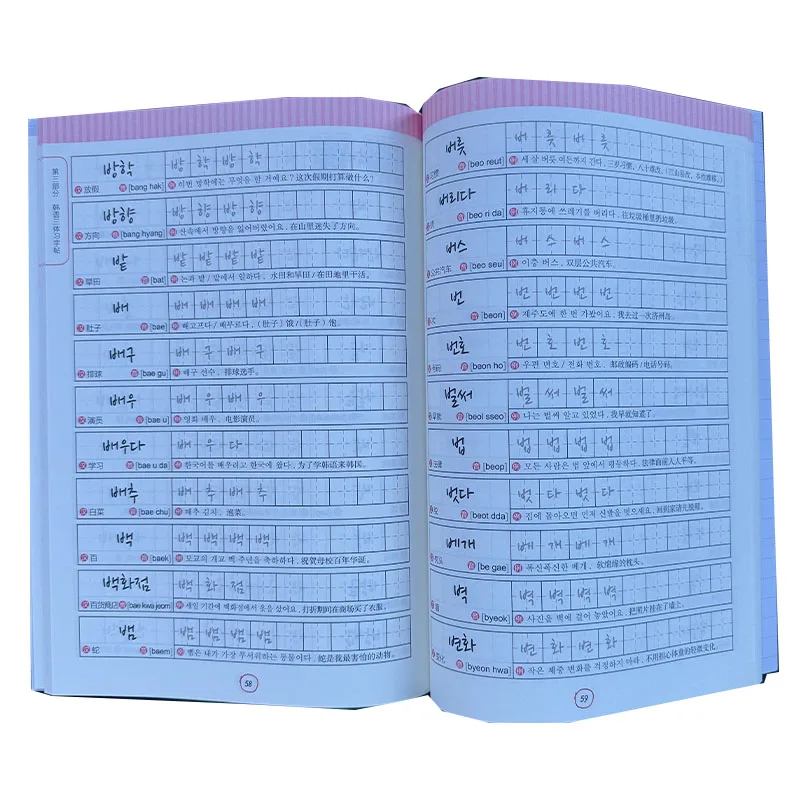 第三部分 韩语三体习字帖
방학 방 학 방 학
汉 放假 音 [bang hak] 例 이번 방학에는 무엇을 할 거예요? 这次假期打算做什么?
방향 방 향 방 향
汉 方向 音 [bang hyang] 例 산속에서 방향을 잃어버렸어요. 在山里迷失了方向。
밭 밭 밭 밭 밭
汉 旱田 音 [bat] 例 논과 밭 / 밭에서 일하다. 水田和旱田 / 在田地里干活。
배 배 배 배 배
汉 肚子 音 [bae] 例 배고프다 / 배부르다. (肚子)饿 / (肚子)饱。
배구 배 구 배 구
汉 排球 音 [bae gu] 例 배구 선수. 排球选手。
배우 배 우 배 우
汉 演员 音 [bae u] 例 영화 배우. 电影演员。
배우다 배 우 다
汉 学习 音 [bae u da] 例 한국어를 배우려고 한국에 왔다. 为了学韩语来韩国。
배추 배 추 배 추
汉 白菜 音 [bae chu] 例 배추 김치. 泡菜。
백 백 백 백 백
汉 百 音 [baek] 例 모교의 개교 백 주년을 축하하다. 祝贺母校百年华诞。
백화점 백 화 점
汉 百货商店 音 [bae kwa jeom] 例 세일 기간에 백화점에서 옷을 샀어요. 打折期间在商场买了衣服。
뱀 뱀 뱀 뱀 뱀
汉 蛇 音 [baem] 例 뱀은 내가 가장 무서워하는 동물이다. 蛇是我最害怕的动物。
58
버릇 버 릇 버 릇
音 [beo reut] 例 세 살 버릇 여든까지 간다. 三岁习惯,八十难改。(江山易改,本性难移。)
버리다 버 리 다
音 [beo ri da] 例 휴지통에 쓰레기를 버리다. 往垃圾桶里扔垃圾。
버스 버 스 버 스
公共汽车 音 [beo seu] 例 이층 버스. 双层公共汽车。
번 번 번 번 번
次 音 [beon] 例 제주도에 한 번 가봤어요. 我去过一次济州岛。
번호 번 호 번 호
号码 音 [beon ho] 例 우편 번호 / 전화 번호. 邮政编码 / 电话号码。
벌써 벌 써 벌 써
早就 音 [beol sseo] 例 나는 벌써 알고 있었다. 我早就知道了。
법 법 법 법 법
法律 音 [beop] 例 모든 사람은 법 앞에서 평등하다. 法律面前人人平等。
벗다 벗 다 벗 다
音 [beot dda] 例 집에 돌아오면 먼저 신발을 벗으세요. 回到家请先脱鞋。
베개 베 개 베 개
枕头 音 [be gae] 例 폭신폭신한 베개. 软绵绵的枕头。
벽 벽 벽 벽 벽
音 [byeok] 例 사진을 벽에 걸어 놓았어요. 把照片挂在了墙上。
변화 변 화 변 화
变化 音 [byeon hwa] 例 작은 체중 변화를 걱정하지 마라. 不用担心体重的轻微变化。
59